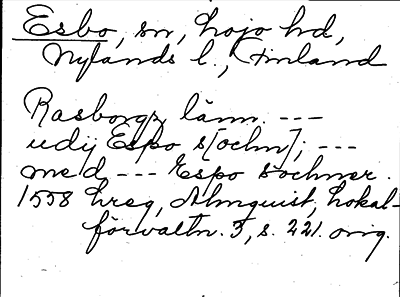 Esbo, sn, Lojo hd,
Nylands l., Finland
Rasborgz länn. ---
udij Espo s[ochn]; ---
med --- Espo sochner.
1558 hreg, Almquist, Lokal-
förvaltn. 3, s. 221. orig.